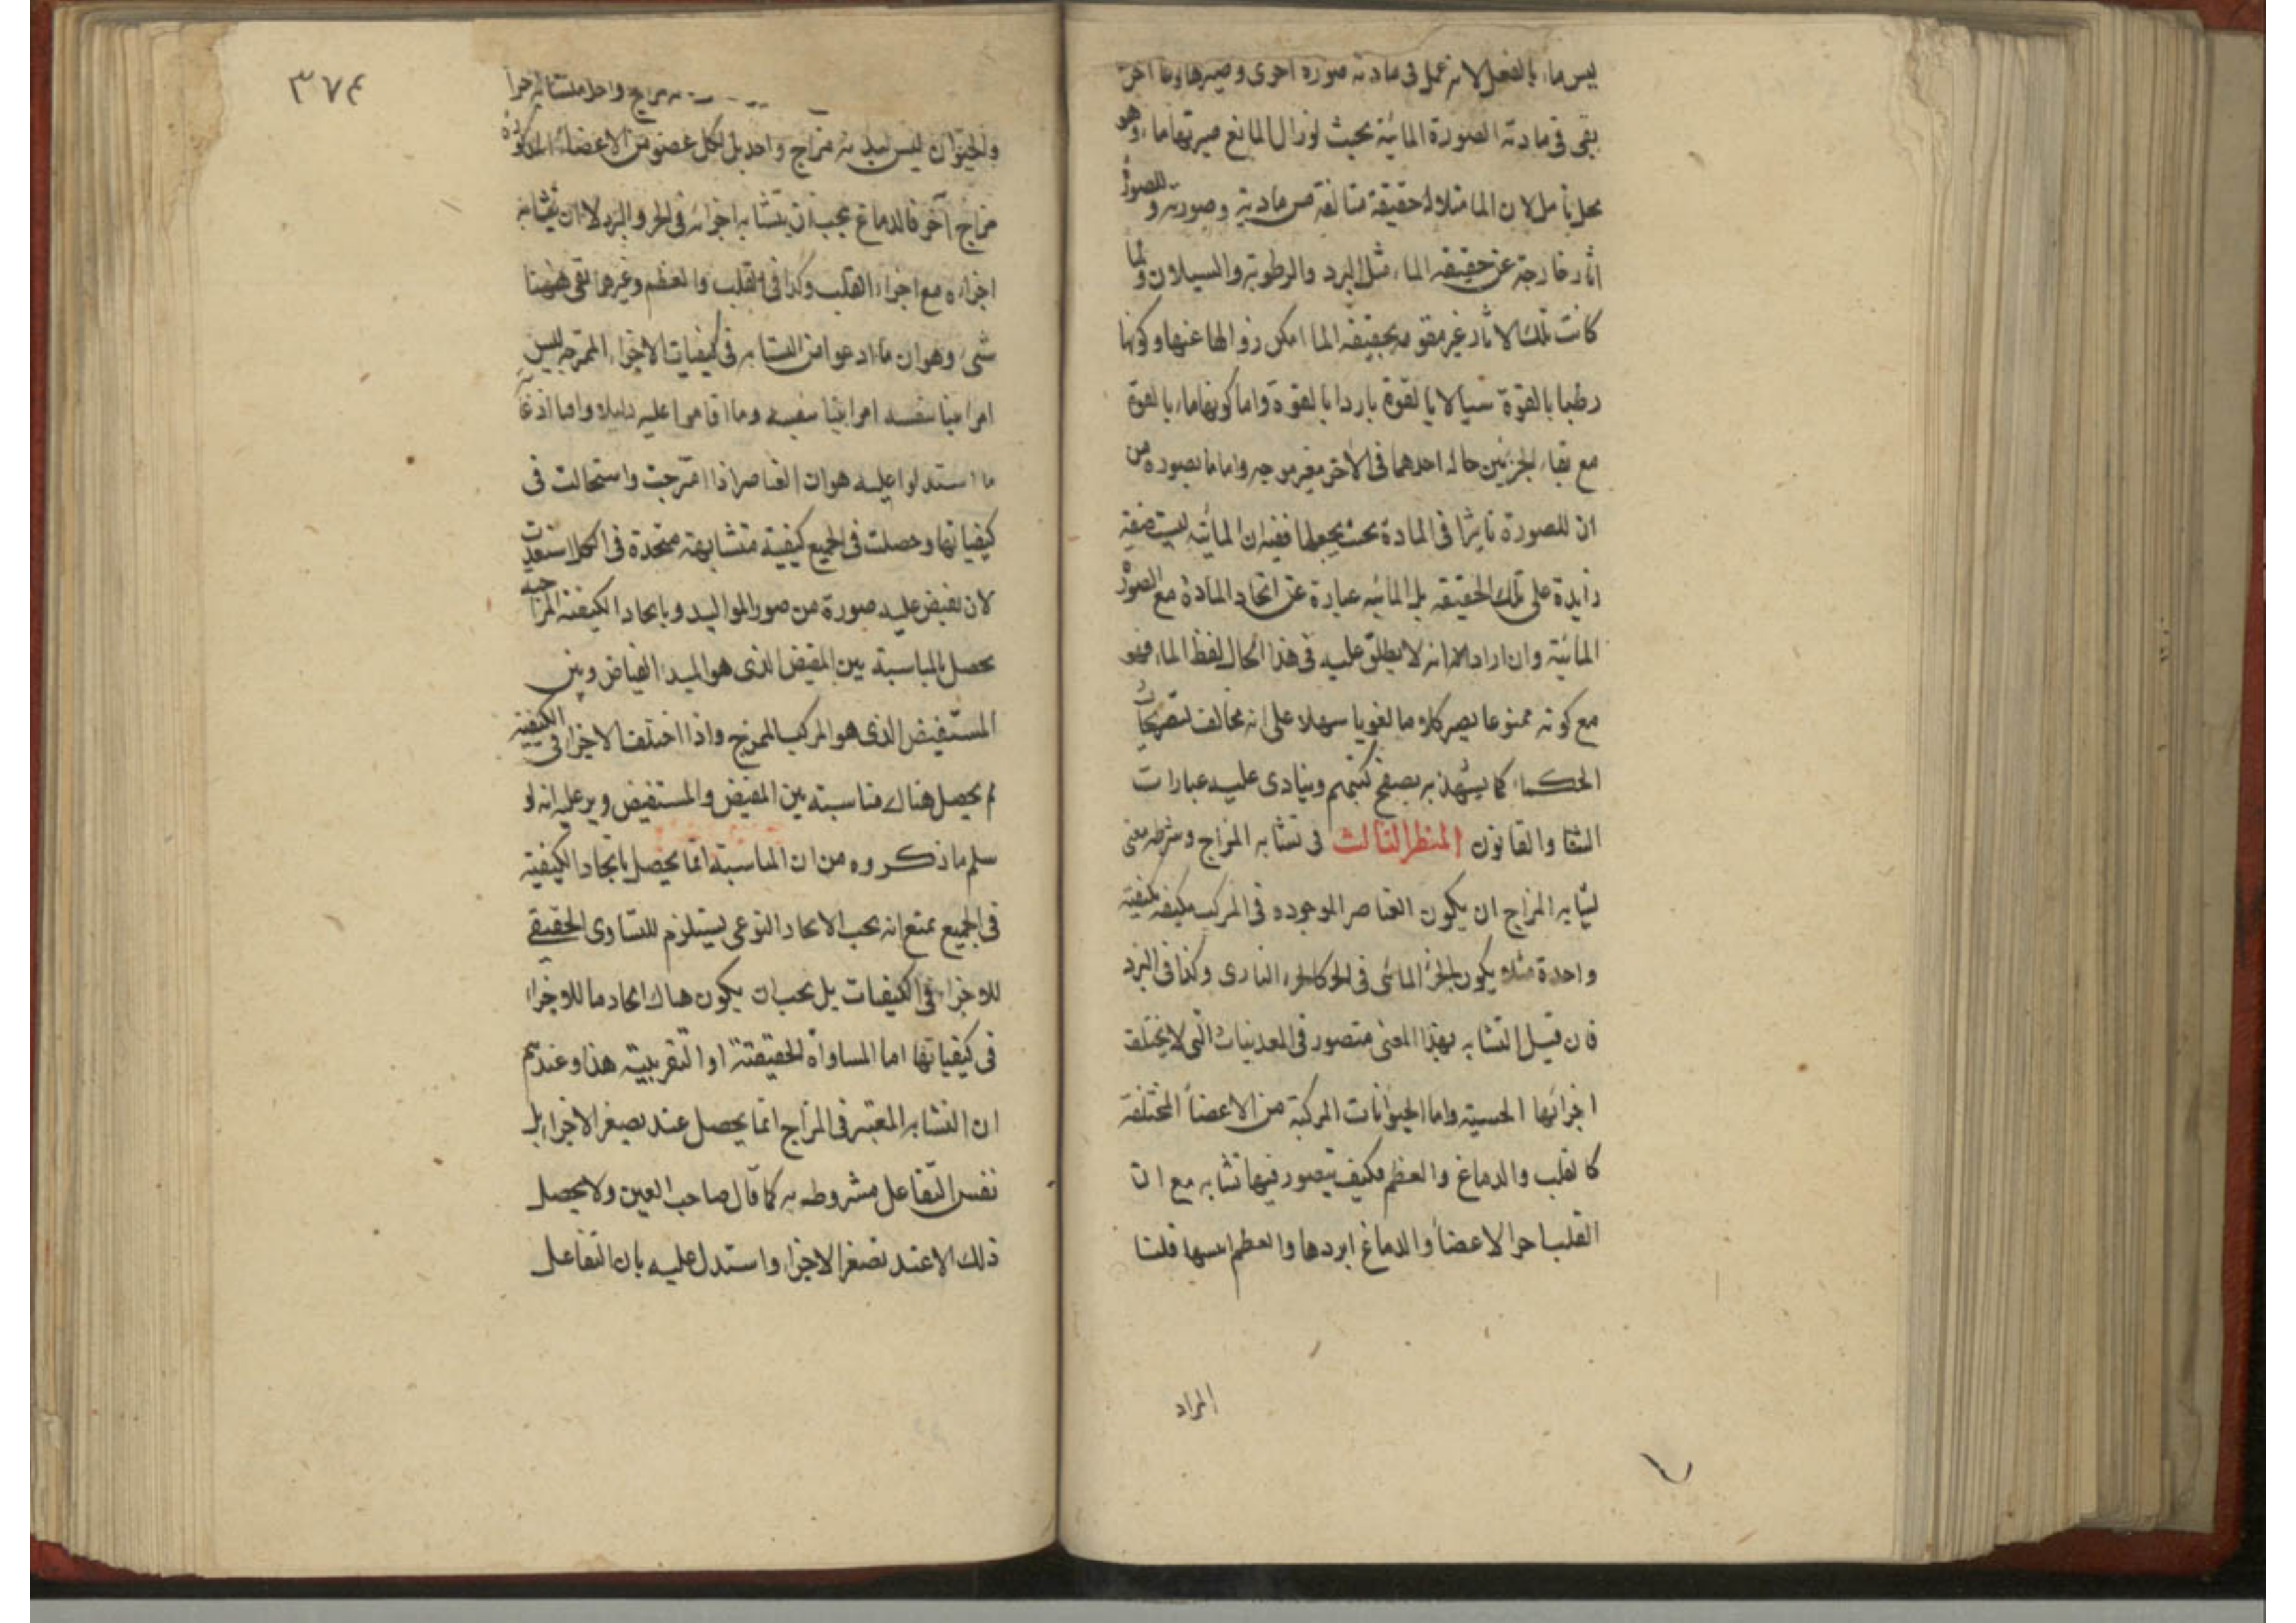 ليس ماء بالفعل لانه عمل فى مادته صورة اخرى وصيرها وما اخر
بقى فى مادته الصورة المائية بحيث لو زال المانع صيرتها ماء وهو
محل تأمل لان الما مثلا له حقيقة متالفة من مادته وصورته وللصورة
اثار خارجة عن حقيقة الماء مثل البرد والرطوبة والسيلان ولما
كانت تلك الاثار غير مقومة بحقيقة الما امكن زوالها عنها وكونها
رطبا بالقوة سيالا بالقوة باردا بالقوة واما كونها ماء بالقوة
مع بقاء الجزئين حالة احدهما فى الاخر فغير موجه واما ما تصوره من
ان للصورة تاثيرا فى المادة بحيث يجعلها ففيه ان المائية ليست صفة
زايدة على تلك الحقيقة بل المائيه عبارة عن اتحاد المادة مع الصورة
المائية وان اراد انه لا يطلق عليه فى هذا الحال لفظ الماء فهو
مع كونه ممنوعا يصير كلاما لغويا سهلا على انه مخالف لتصريحات
الحكماء كما يشهد به تصفح كتبهم وينادى عليه عبارات
الشفا والقانون المنظر الثالث فى تشابه المزاج وشرطه معنى
تشابه المزاج ان يكون العناصر الموجوده فى المركب مكيفة بكيفية
واحدة مثلا يكون الجزء المائى فى الحر كالجزء النارى وكذا فى البرد
فان قيل التشابه بهذا المعنى متصور فى المعدنيات التى لا يختلف
اجزائها الحسية واما الحيوانات المركبة من الاعضأ المختلفة
كالقلب والدماغ والعظم فكيف يتصور فيها تشابه مع ان
القلب احر الاعضأ والدماغ ابردها والعظم ايبسها قلنا
المراد
٣٧٤
مزاج واحد متشابه اجزا
والحيوان ليس لبدنه مزاج واحد بل لكل عضو من الاعضاء المذكورة
مزاج آخر فالدماغ يجب ان يتشابه اجزائه فى الحر والبرد لا ان تشابه
اجزاءه مع اجزاء القلب وكذا فى القلب والعظم وغيرهما بقى ههنا
شىء وهو ان ما ادعوا من التشابه فى كيفيات الاجزاء الممتزجه ليس
امرا بينا بنفسه وما اقاموا عليه دليلا
ما استدلوا عليه هو ان العناصر اذا امتزجت واستحالت فى
كيفياتها وحصلت فى الجميع كيفية متشابهة متحدة فى الكل استعدت
لان تفيض عليه صورة من صور المواليد وباتحاد الكيفية المزاجية
يحصل المناسبة بين المفيض الذى هو المبدء الفياض وبين
المستفيض الذى هو المركب الممزج واذا اختلف الاجزاء فى الكيفية
لم يحصل هناك مناسبة بين المفيض والمستفيض ويرد عليه انه لو
سلم ما ذكروه من ان المناسبة انما يحصل باتحاد الكيفية
فى الجميع يمنع انه يجب الاتحاد النوعى يستلزم للتساوى الحقيقى
للاجزاء فى الكيفيات بل يجب ان يكون هناك اتحاد ما للاجزاء
فى كيفياتها اما المساواة الحقيقية او التقريبية هذا وعندهم
ان التشابه المعتبر فى المزاج انما يحصل عند تصغر الاجزاء بل
نفس التفاعل مشروطه به كما قال صاحب العين ولا يحصل
ذلك الا عند تصغر الاجزاء واستدل عليه بان التفاعل